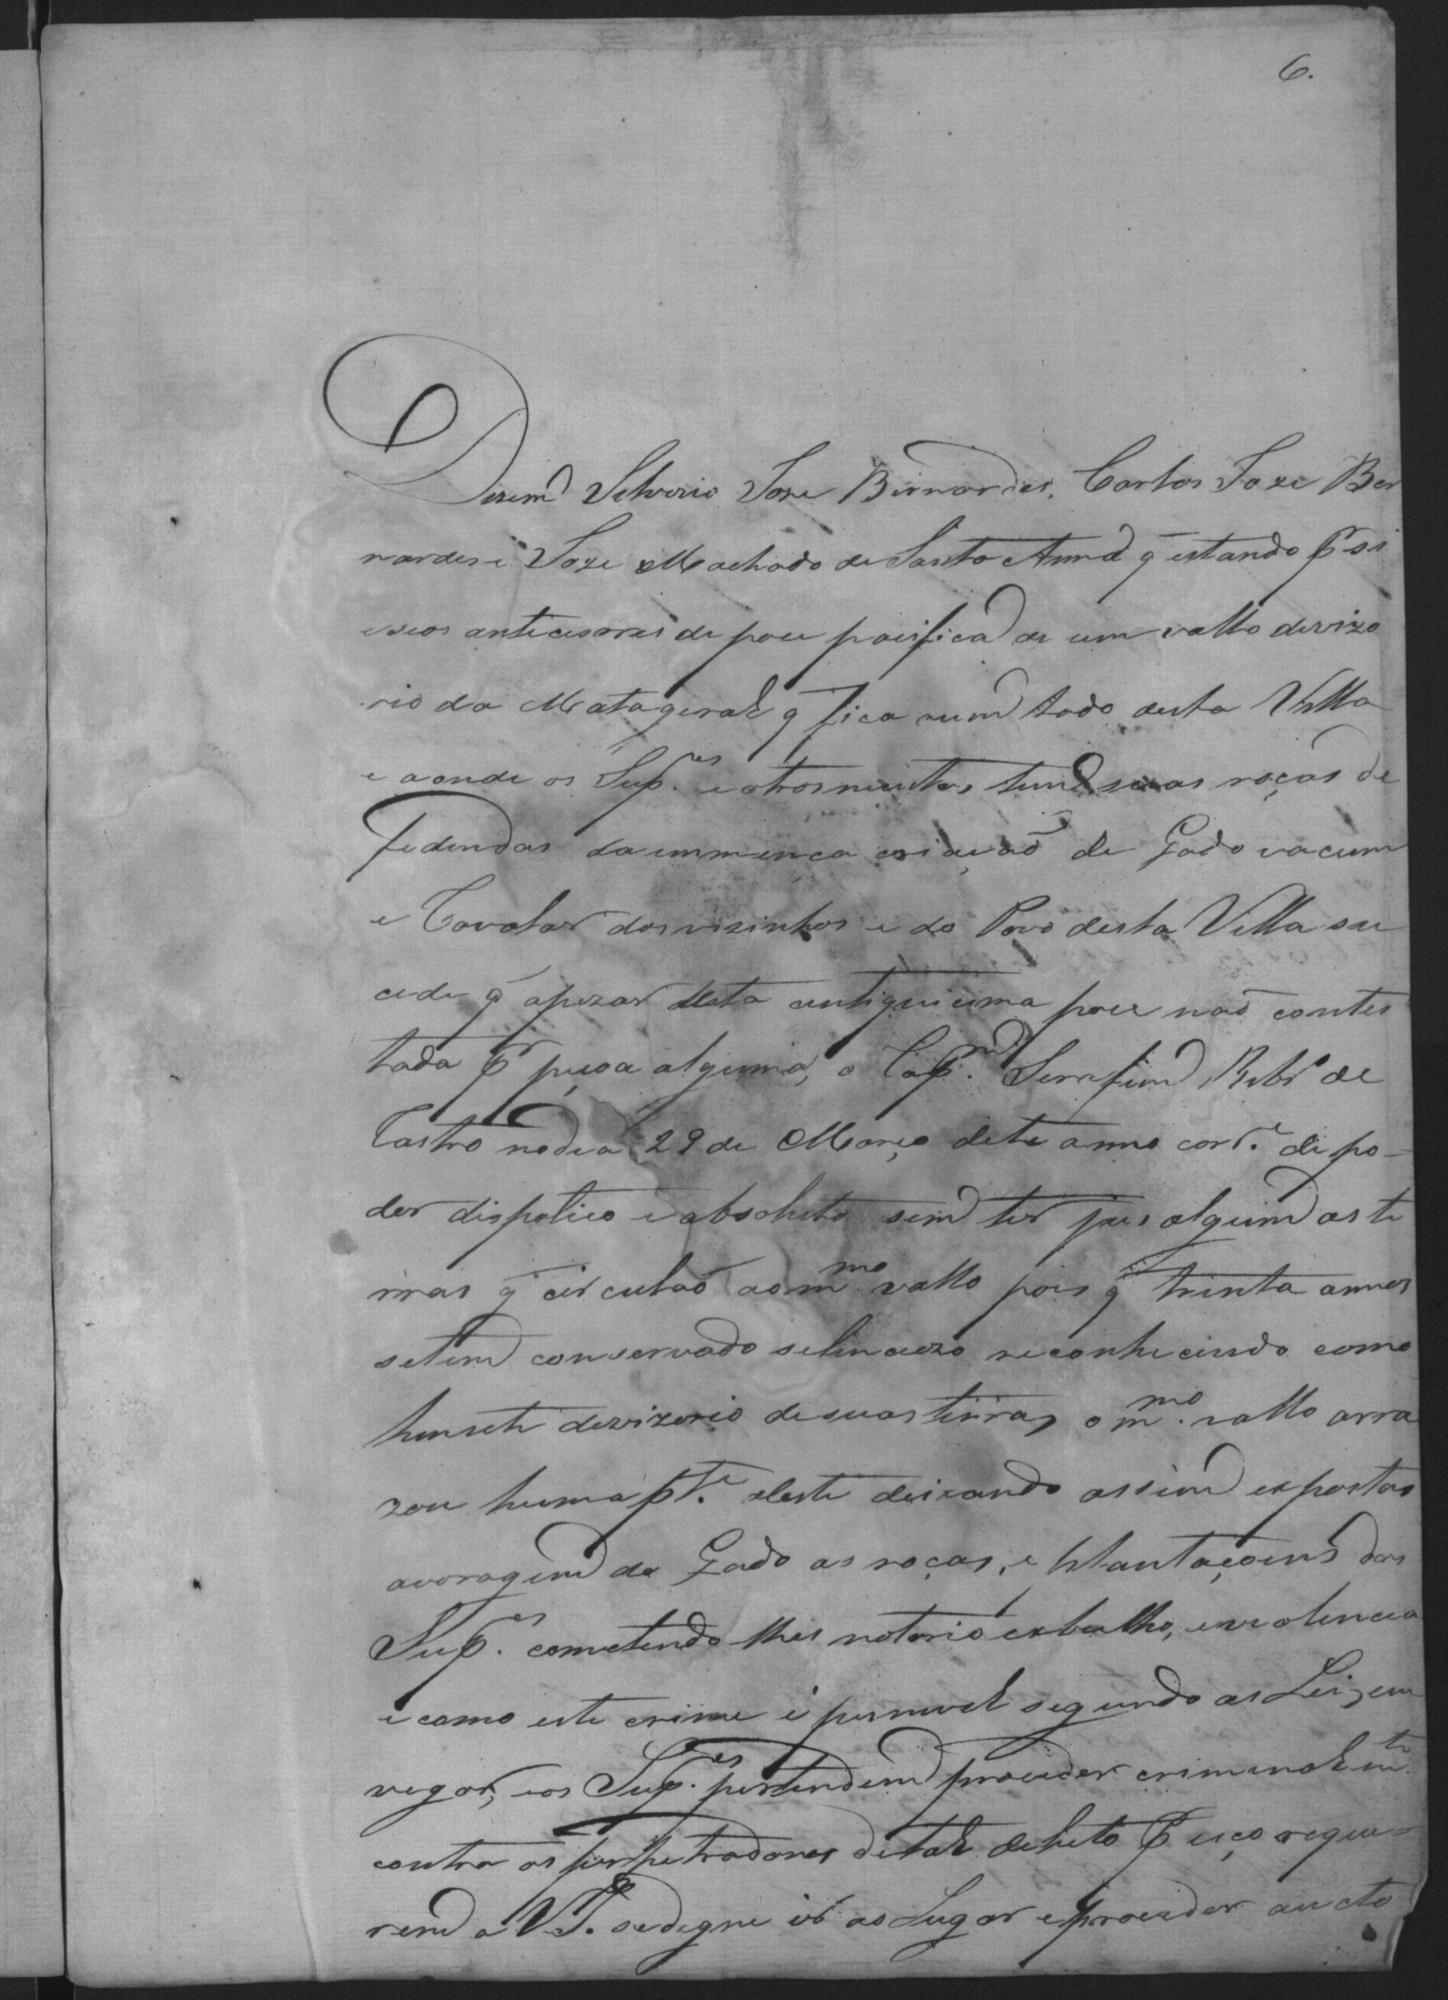 6.
Dizem Silverio Joze Bernardes, Carlos Joze Ber
nardes e Joze Machado de Santa Anna q̃ estando pr si
e seos antecesores de poce pacifica de um vallo devizo
rio da Mata geral q̃ fica num lado desta Villa
e aonde os Supes. e otros muitos tem suas roças de
fedendas da immença criação de Gado vacum
e Cavalar dos vizinhos e do Povo desta Villa su
cede q̃ apezar desta antiquicima poce não contes
tada pr peçoa alguma, o Capm. Serafim Ribro de
Castro no dia 29 de Março deste anno corre. de po-
der dispotico e absoluto sem ter jus algum as te
rras q̃ circulão ao mmo vallo pois q̃ trinta annos
se tem conservado silinciozo reconhecendo como
hunrete devizorio de suas terras o mmo. vallo arra
zou huma pte. deste deixando assim expostas
a voragem do Gado as roças, e plantaçoens dos
Supes. cometendo lhes notorio exbulho, e violencia
e como este crime é punivel segundo as Leis em
vegor, e os Supes. pertendem proceder criminalmte
contra os perpetradores de tal delito pr iço reque-
rem a V.S. se degne ir ao Lugar e proceder aucto